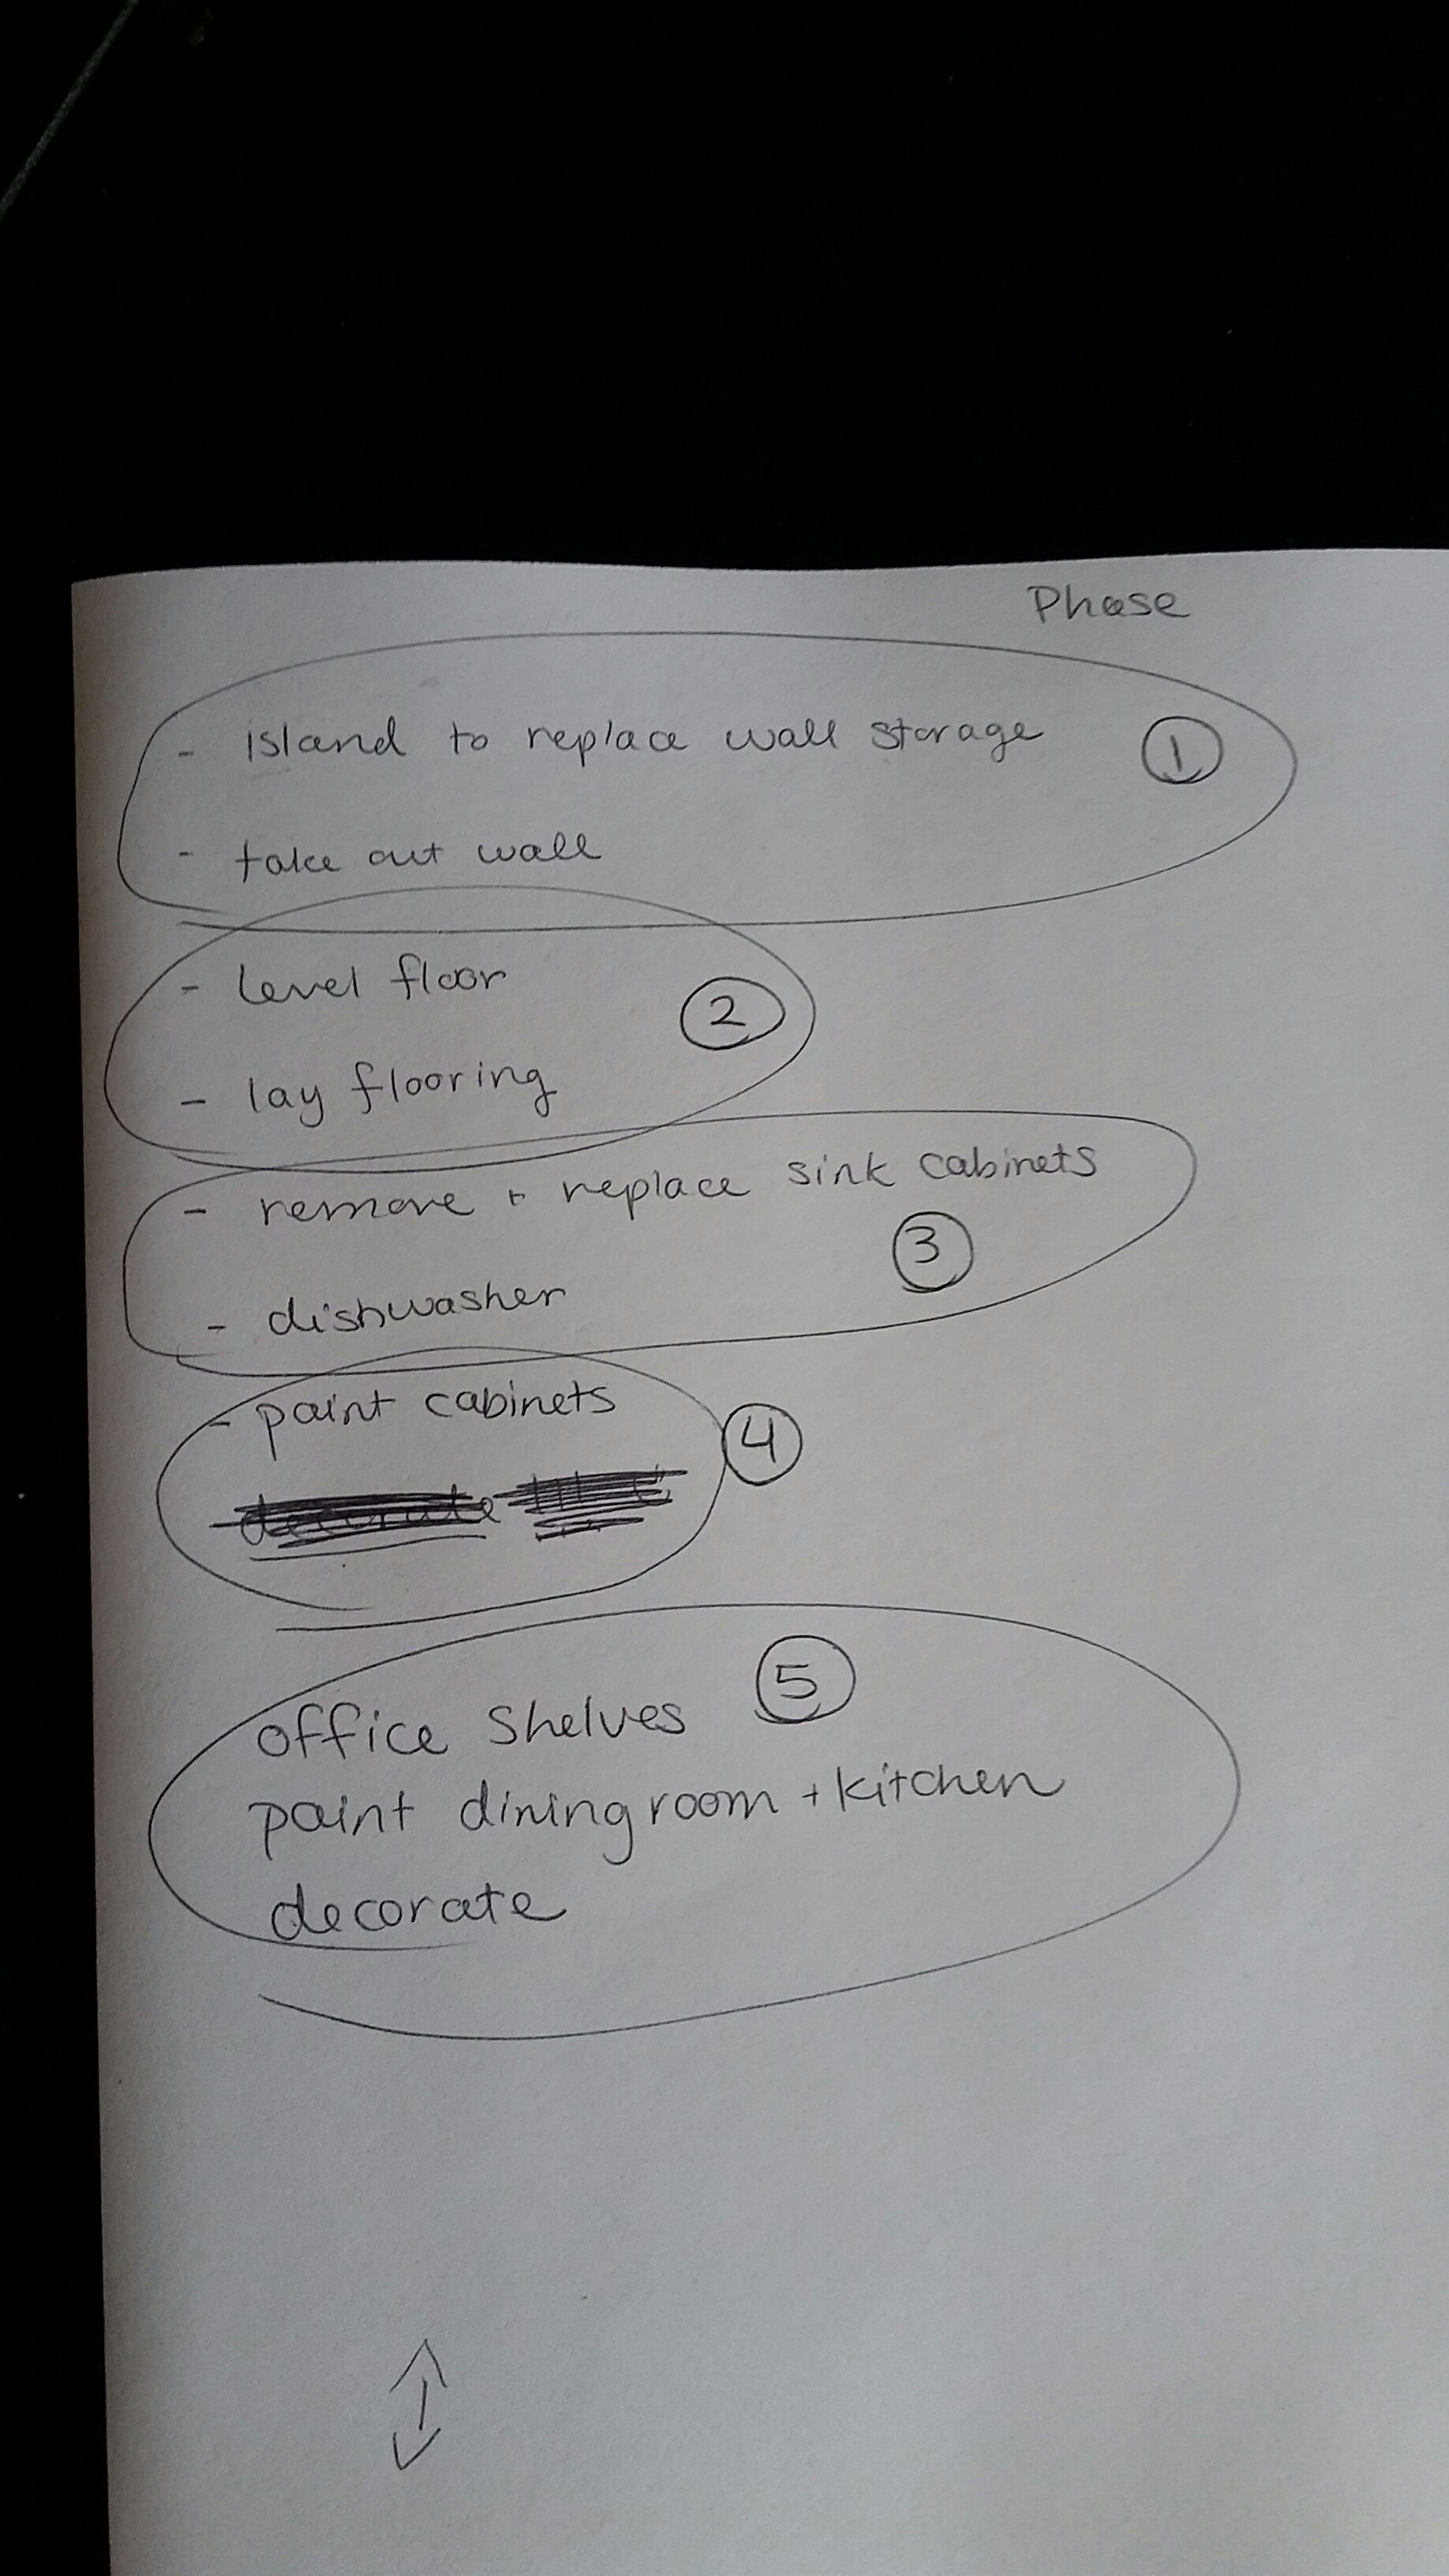 Phase
- island to replace wall storage 1
- take out wall
- level floor
2
- lay flooring
- remove + replace sink cabinets
3
- dishwasher
- paint cabinets
4
decorate
office shelves 5
paint dining room + kitchen
decorate